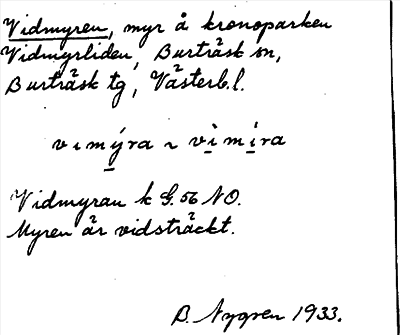 Vidmyren, myr å kronoparken
Vidmyrliden, Burträsk sn,
Burträsk tg, Västerb.l.
vımý̱ra ~ vi̱mi̱ra
Vidmyran k G. 56 NO.
Myren är vidsträckt.
B. Nygren 1933.